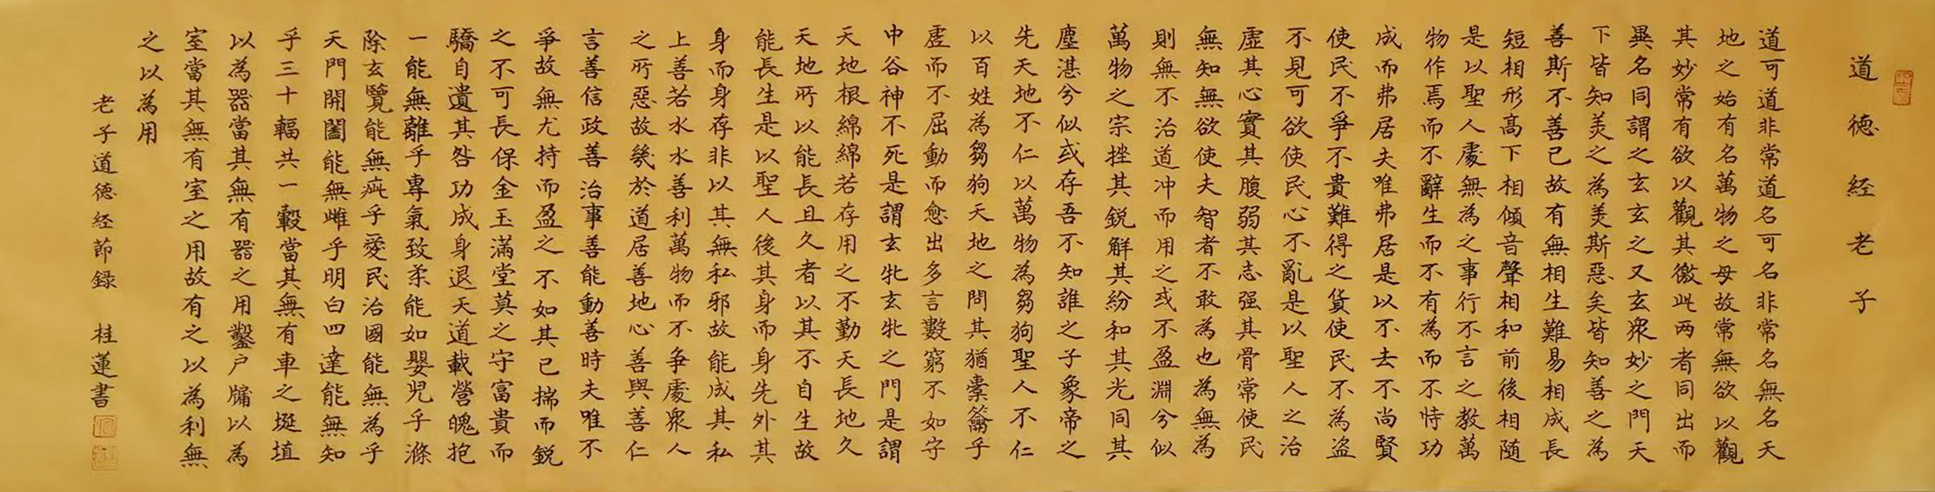 道德经老子
道可道非常道名可名非常名無名天
地之始有名萬物之母故常無欲以觀
其妙常有欲以觀其徼此两者同出而
異名同謂之玄玄之又玄衆妙之門天
下皆知美之為美斯惡矣皆知善之為
善斯不善已故有無相生難易相成長
短相形高下相傾音聲相和前後相随
是以聖人處無為之事行不言之教萬
物作焉而不辭生而不有為而不恃功
成而弗居夫唯弗居是以不去不尚賢
使民不爭不貴難得之貨使民不為盗
不見可欲使民心不亂是以聖人之治
虛其心實其腹弱其志强其骨常使民
無知無欲使夫智者不敢為也為無為
則無不治道冲而用之或不盈淵兮似
萬物之宗挫其鋭解其紛和其光同其
塵湛兮似或存吾不知誰之子象帝之
先天地不仁以萬物為芻狗聖人不仁
以百姓為芻狗天地之間其猶橐籥乎
虛而不屈動而愈出多言數窮不如守
中谷神不死是謂玄牝玄牝之門是謂
天地根綿綿若存用之不勤天長地久
天地所以能長且久者以其不自生故
能長生是以聖人後其身而身先外其
身而身存非以其無私邪故能成其私
上善若水水善利萬物而不争處衆人
之所惡故幾於道居善地心善與善仁
言善信政善治事善能動善時夫唯不
爭故無尤持而盈之不如其已揣而鋭
之不可長保金玉滿堂莫之守富貴而
驕自遺其咎功成身退天道載營魄抱
一能無離乎專氣致柔能如嬰児乎滌
除玄覽能無疵乎愛民治國能無為乎
天門開闔能無雌乎明白四達能無知
乎三十輻共一轂當其無有車之埏埴
以為器當其無有器之用鑿户牖以為
室當其無有室之用故有之以為利無
之以為用
老子道德经節録 桂蓮書